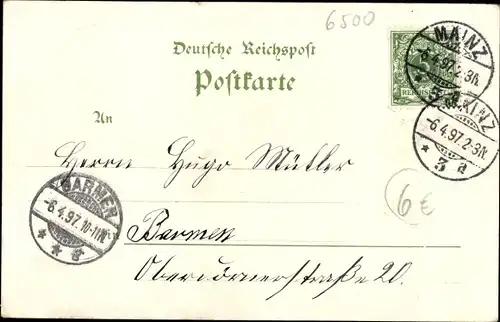 6500
Deutsche Reichspost
Postkarte
MAINZ
-6.4.97.2-3N.
* 3 a
5
REICHSPOST
MAINZ
-6.4.97.2-3N.
* 3 a
An
Herrn Hugo Müller
BARMEN
-6.4.97.10-11N.
* * e
Barmen
6€
Oberdörnerstraße 20.